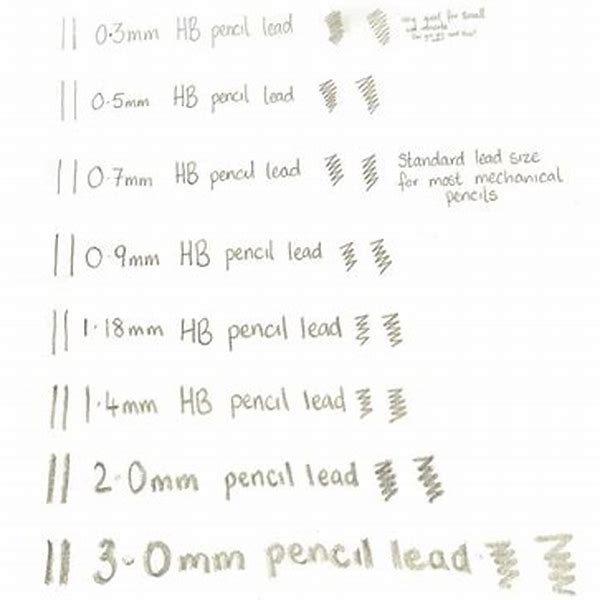 0.3mm HB pencil lead
very good for small
0.5mm HB pencil lead
0.7mm HB pencil lead
Standard lead size
for most mechanical
pencils
0.9mm HB pencil lead
1.18mm HB pencil lead
1.4mm HB pencil lead
2.0mm pencil lead
3.0mm pencil lead